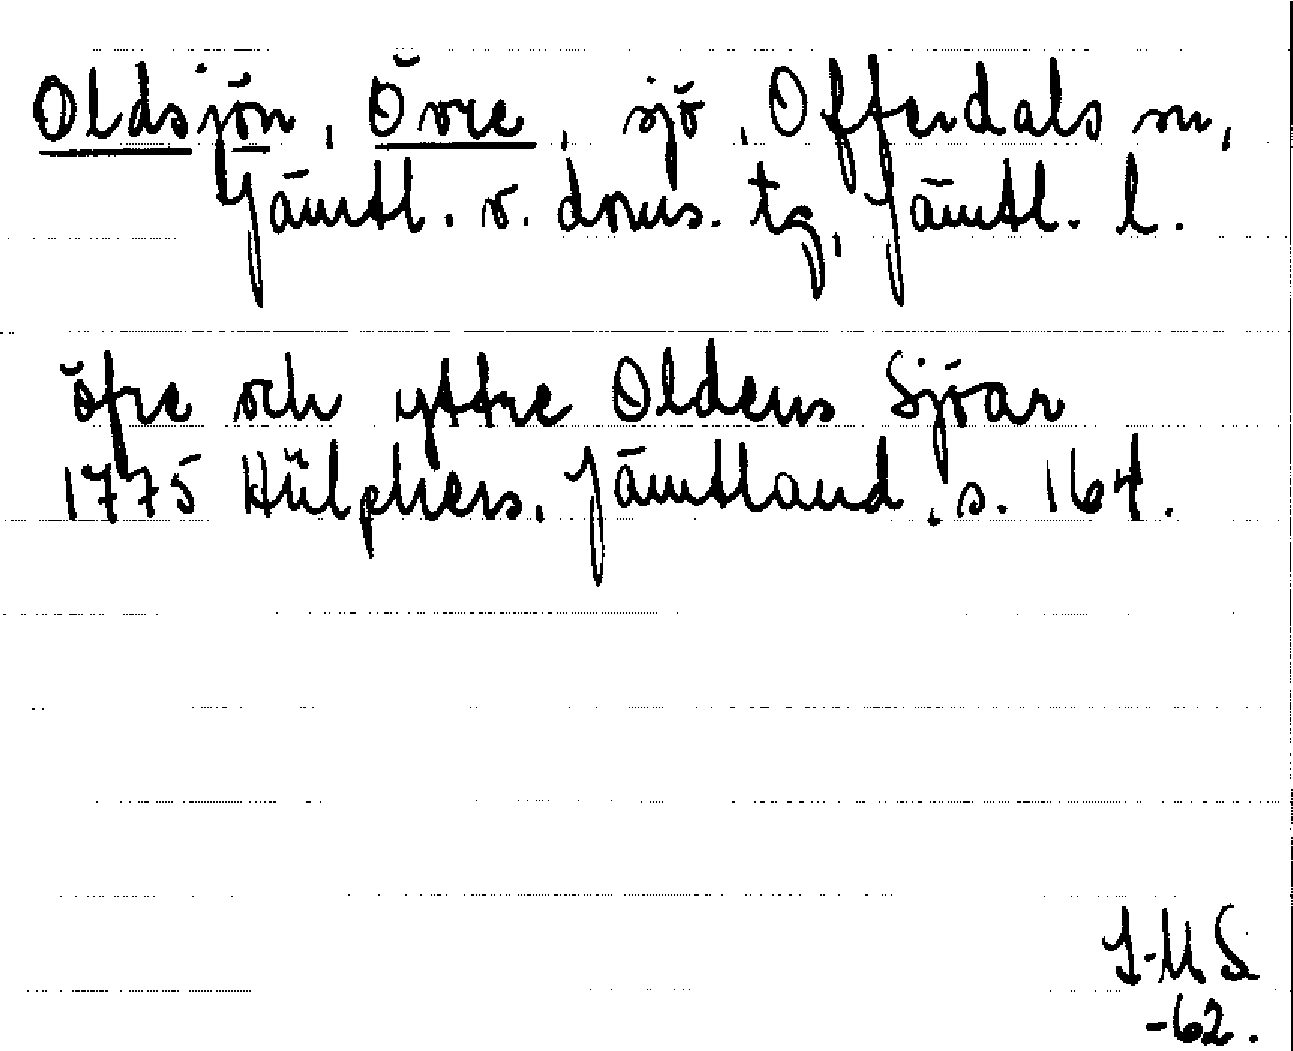 Oldsjön, Övre, sjö, Offerdals sn,
Jämtl. v. doms. tg, Jämtl. l.
öfre och yttre Oldens Sjöar
1775 Hülphers, Jämtland, s. 164.
I-MS
-62.